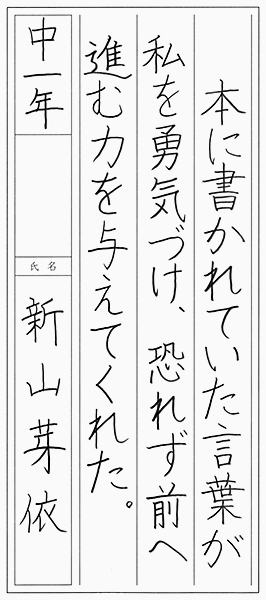 本に書かれていた言葉が
私を勇気づけ、恐れず前へ
進む力を与えてくれた。
中一年
氏名
新山芽依